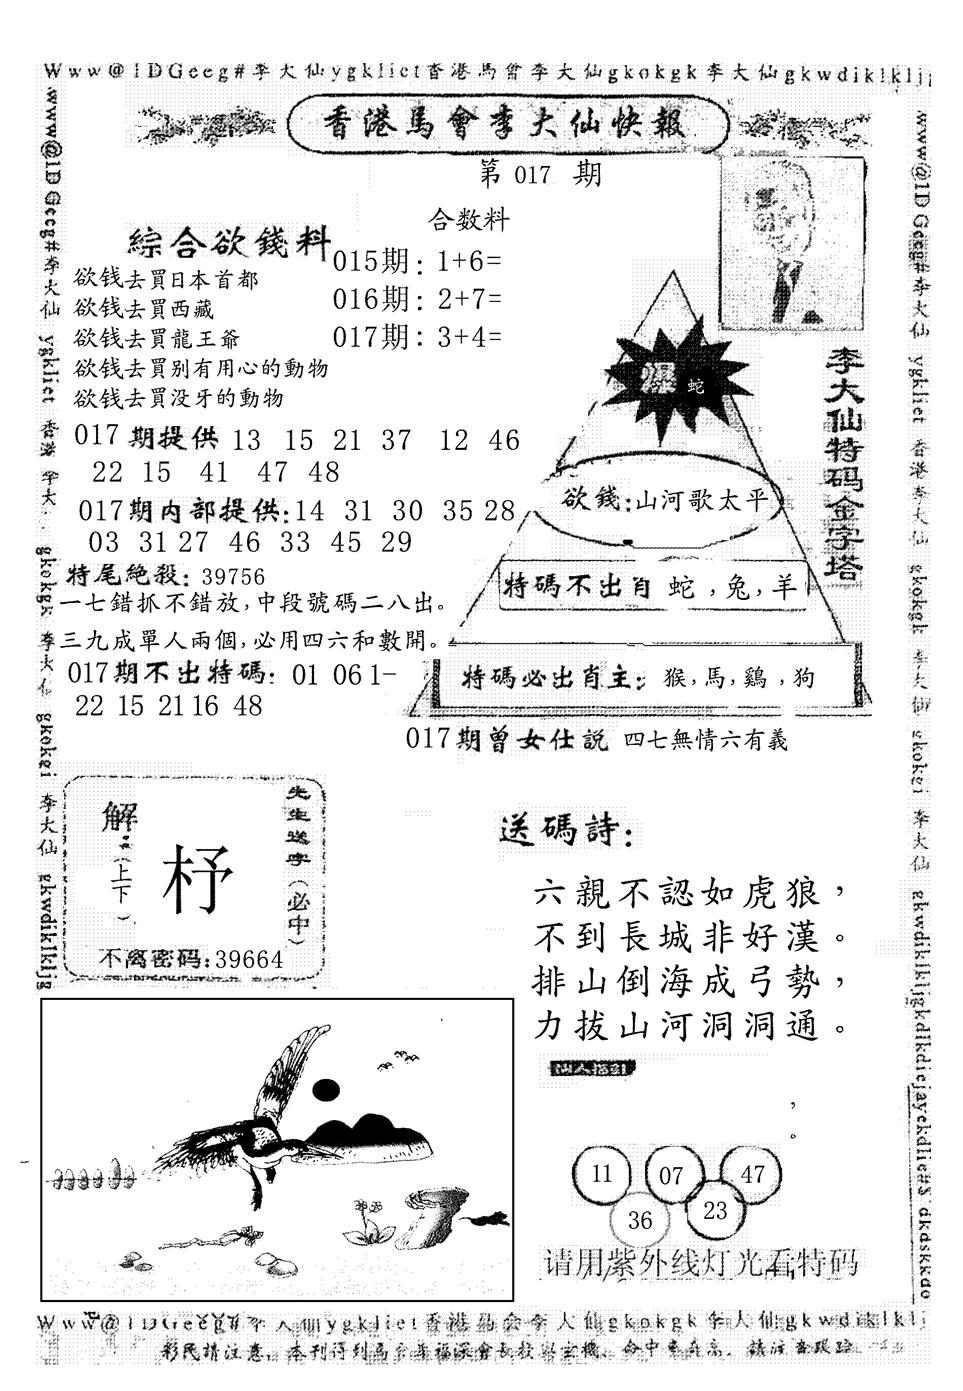 Www@1DGeeg#李大仙ygklict香港馬會李大仙gkokgk李大仙gkwdiklkljg
香港馬會李大仙快報
第 017 期
合数料
綜合欲錢料
015期: 1+6=
欲钱去買日本首都
016期: 2+7=
欲钱去買西藏
017期: 3+4=
欲钱去買龍王爺
欲钱去買别有用心的動物
欲钱去買没牙的動物
爆 蛇
李大仙特码金字塔
017 期提供 13 15 21 37 12 46
22 15 41 47 48
欲錢:山河歌太平
017期内部提供:14 31 30 35 28
03 31 27 46 33 45 29
特尾絶殺: 39756
特碼不出肖 蛇,兔,羊
一七錯抓不錯放,中段號碼二八出。
三九成單人兩個,必用四六和數開。
017期不出特碼: 01 06 1-
22 15 21 16 48
特碼必出肖主: 猴,馬,鷄,狗
017期曾女仕説 四七無情六有義
解:(上下)
杼
先生送字(必中)
不离密码:39664
送碼詩:
六親不認如虎狼,
不到長城非好漢。
排山倒海成弓勢,
力拔山河洞洞通。
仙人指引
,
。
11 07 47
36 23
请用紫外线灯光看特码
www@1DGeeg#李大仙 ygklict 香港 李大 gkokgk 李大仙 gkokgi 李大仙 gkwdiklkljg
www@1DGeeg#李大仙 ygklict 香港李大仙 gkokgk 李大仙 gkokgi 李大仙 gkwdiklkljgkdlkdiejayekdlie#$ dkdskkdo
Www@1DGeeg#李大仙ygklict香港馬会李大仙gkokgk李大仙gkwdiklklj
彩民請注意,本刊得到馬會